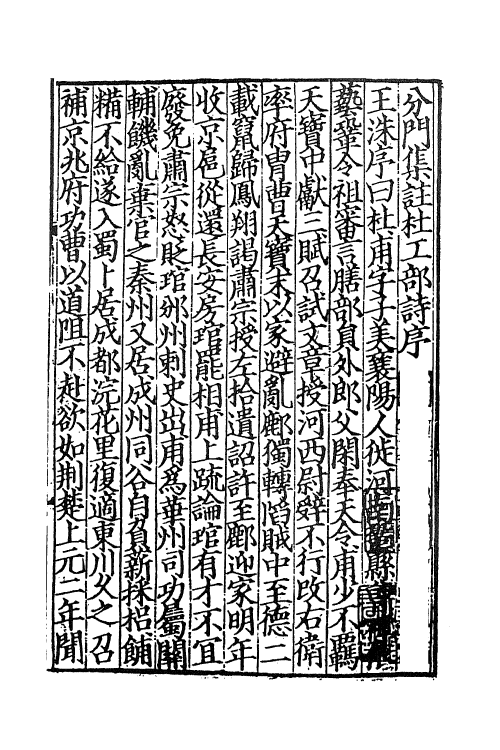 分門集註杜工部詩序
王洙序曰杜甫字子美襄陽人徙河南鞏縣
藝鞏令祖審言膳部員外郎父閑奉天令甫少不羈
天寶中獻三賦召試文章授河西尉辝不行改右衛
率府胄曹天寶末以家避亂鄜獨轉䧟賊中至德二
載竄歸鳳翔謁肅宗授左拾遺詔許至鄜迎家明年
收京扈從還長安房琯罷相甫上疏論琯有才不宜
廢免肅宗怒貶琯邠州刺史出甫爲華州司功屬關
輔饑亂棄官之秦州又居成州同谷自負薪採梠餔
糒不給遂入蜀卜居成都浣花里復適東川久之召
補京兆府功曹以道阻不赴欲如荆楚上元二年聞